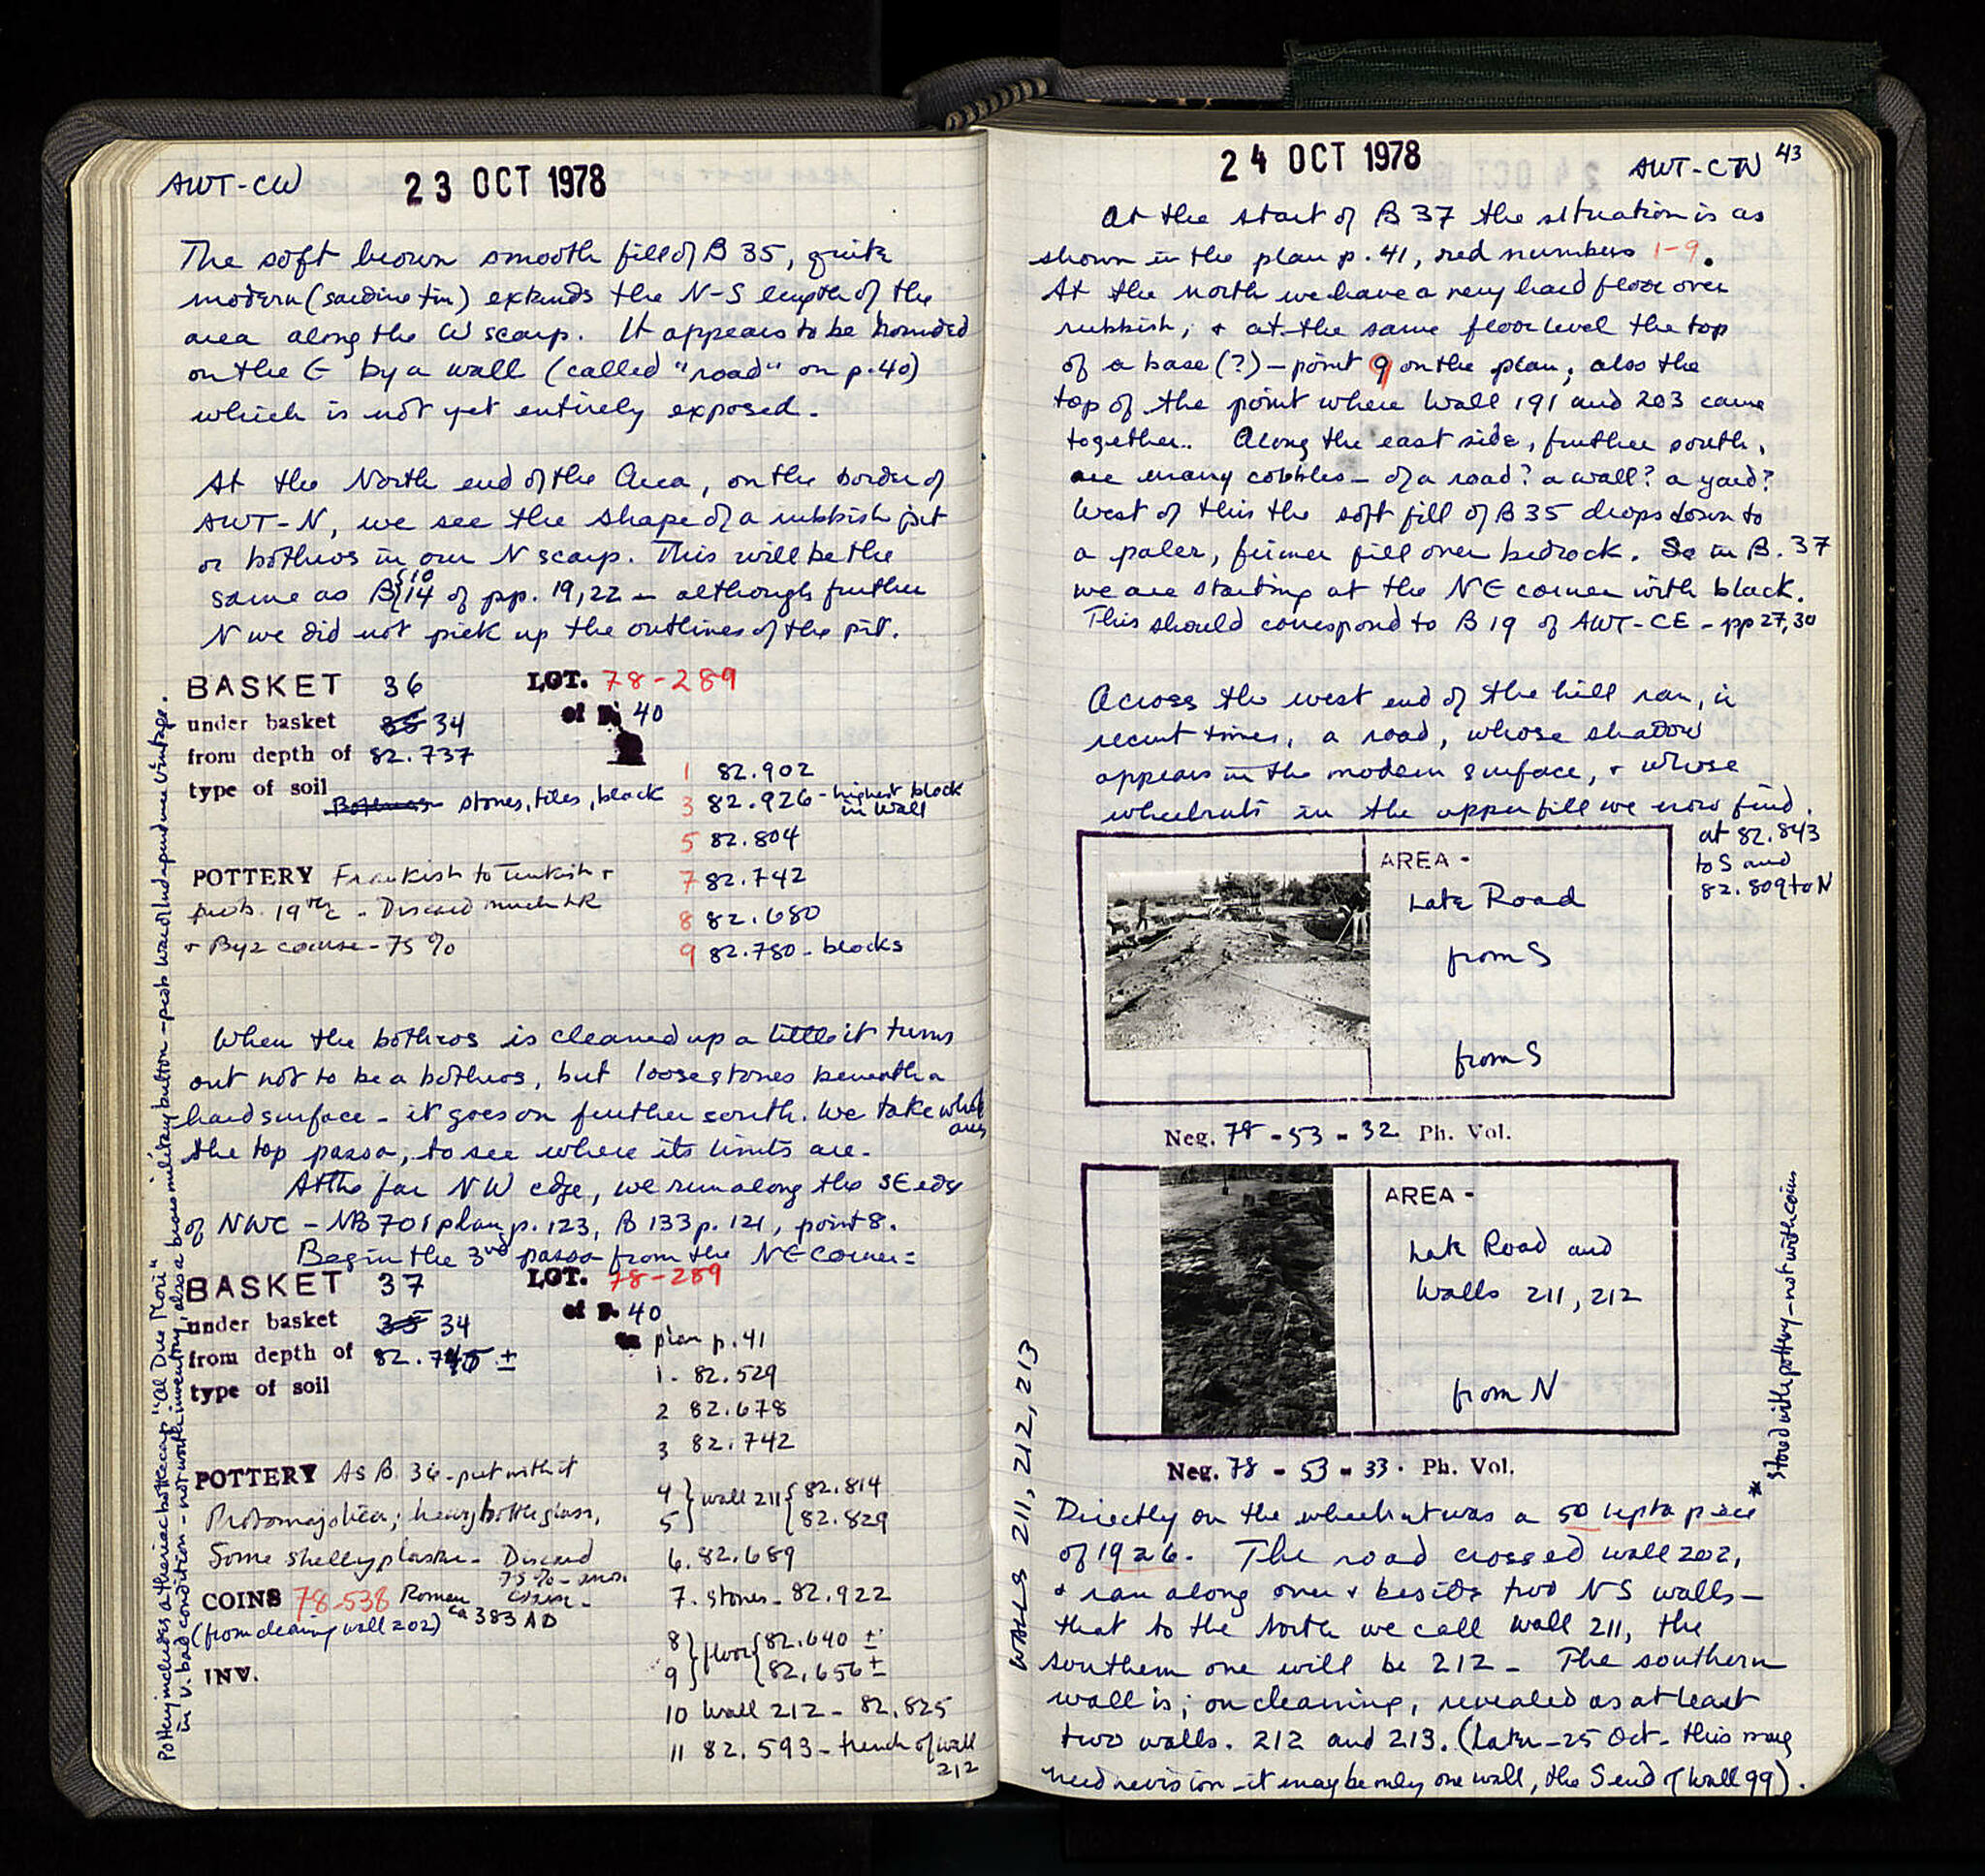 AWT-CW
23 OCT 1978
The soft brown smooth fill of B 35, quite
modern (sardine tin) extends the N-S length of the
area along the W scarp. It appears to be bounded
on the E by a wall (called "road" on p.40)
which is not yet entirely exposed.
At the North end of the Area, on the border of
AWT-N, we see the shape of a rubbish pit
or bothros in our N scarp. This will be the
same as B{10 14 of pp. 19,22 - although further
N we did not pick up the outlines of the pit.
BASKET 36 LOT. 78-289
under basket 35 34 of P. 40
from depth of 82.737
type of soil Bothros stones, tiles, black
1 82.902
3 82.926 - highest block in wall
5 82.804
7 82.742
8 82.680
9 82.780 - blocks
POTTERY Frankish to Turkish +
prob. 19th c - Discard much LR
+ Byz coarse - 75%
When the bothros is cleaned up a little it turns
out not to be a bothros, but loose stones beneath a
hard surface - it goes on further south. We take whole area
the top passa, to see where its limits are.
At the far NW edge, we run along the SE edge
of NWC - NB 701 plan p. 123, B 133 p. 121, point 8.
Begin the 3rd passa from the NE corner =
BASKET 37 LOT. 78-289
under basket 35 34 of P. 40
from depth of 82.745 ±
type of soil
plan p. 41
1. 82.529
2 82.678
3 82.742
4 } wall 211 { 82.814
5 } { 82.829
6. 82.689
7. stones - 82.922
8 } floor { 82.640 ±
9 } { 82.656 ±
10 Wall 212 - 82.825
11 82.593 - trench of wall 212
POTTERY As B. 36 - put with it
Protomajolica; heavy bottle glass,
Some shelly plaster - Discard
75% - misc. coarse -
COINS 78-538 Roman ca 383 AD
(from cleaning wall 202)
INV.
Pottery includes a theriac bottle cap "Al Due Mori"
in v. bad condition - not worth inventory, also a brass military button - prob war of Independence vintage.
24 OCT 1978
AWT-CW 43
At the start of B 37 the situation is as
shown in the plan p. 41, red numbers 1-9.
At the north we have a very hard floor over
rubbish, + at the same floor level the top
of a base (?) - point 9 on the plan; also the
top of the point where Wall 191 and 203 came
together. Along the east side, further south,
are many cobbles - of a road? a wall? a yard?
West of this the soft fill of B 35 drops down to
a paler, firmer fill over bedrock. So in B. 37
we are starting at the NE corner with black.
This should correspond to B 19 of AWT-CE - pp 27,30
Across the west end of the hill ran, in
recent times, a road, whose shadow
appears in the modern surface, + whose
wheelruts in the upper fill we now find.
at 82.843
to S and
82.809 to N
AREA -
Late Road
from S
from S
Neg. 78 - 53 - 32 Ph. Vol.
AREA -
Late Road and
Walls 211, 212
from N
Neg. 78 - 53 - 33. Ph. Vol.
WALLS 211, 212, 213
* Stored with pottery - not with coins
Directly on the wheelrut was a 50 lepta piece*
of 1926. The road crossed wall 202,
+ ran along over + beside two NS walls -
that to the North we call wall 211, the
southern one will be 212 - The southern
wall is, on cleaning, revealed as at least
two walls. 212 and 213. (Later - 25 Oct - this may
need revision - it may be only one wall, the S end of Wall 99).